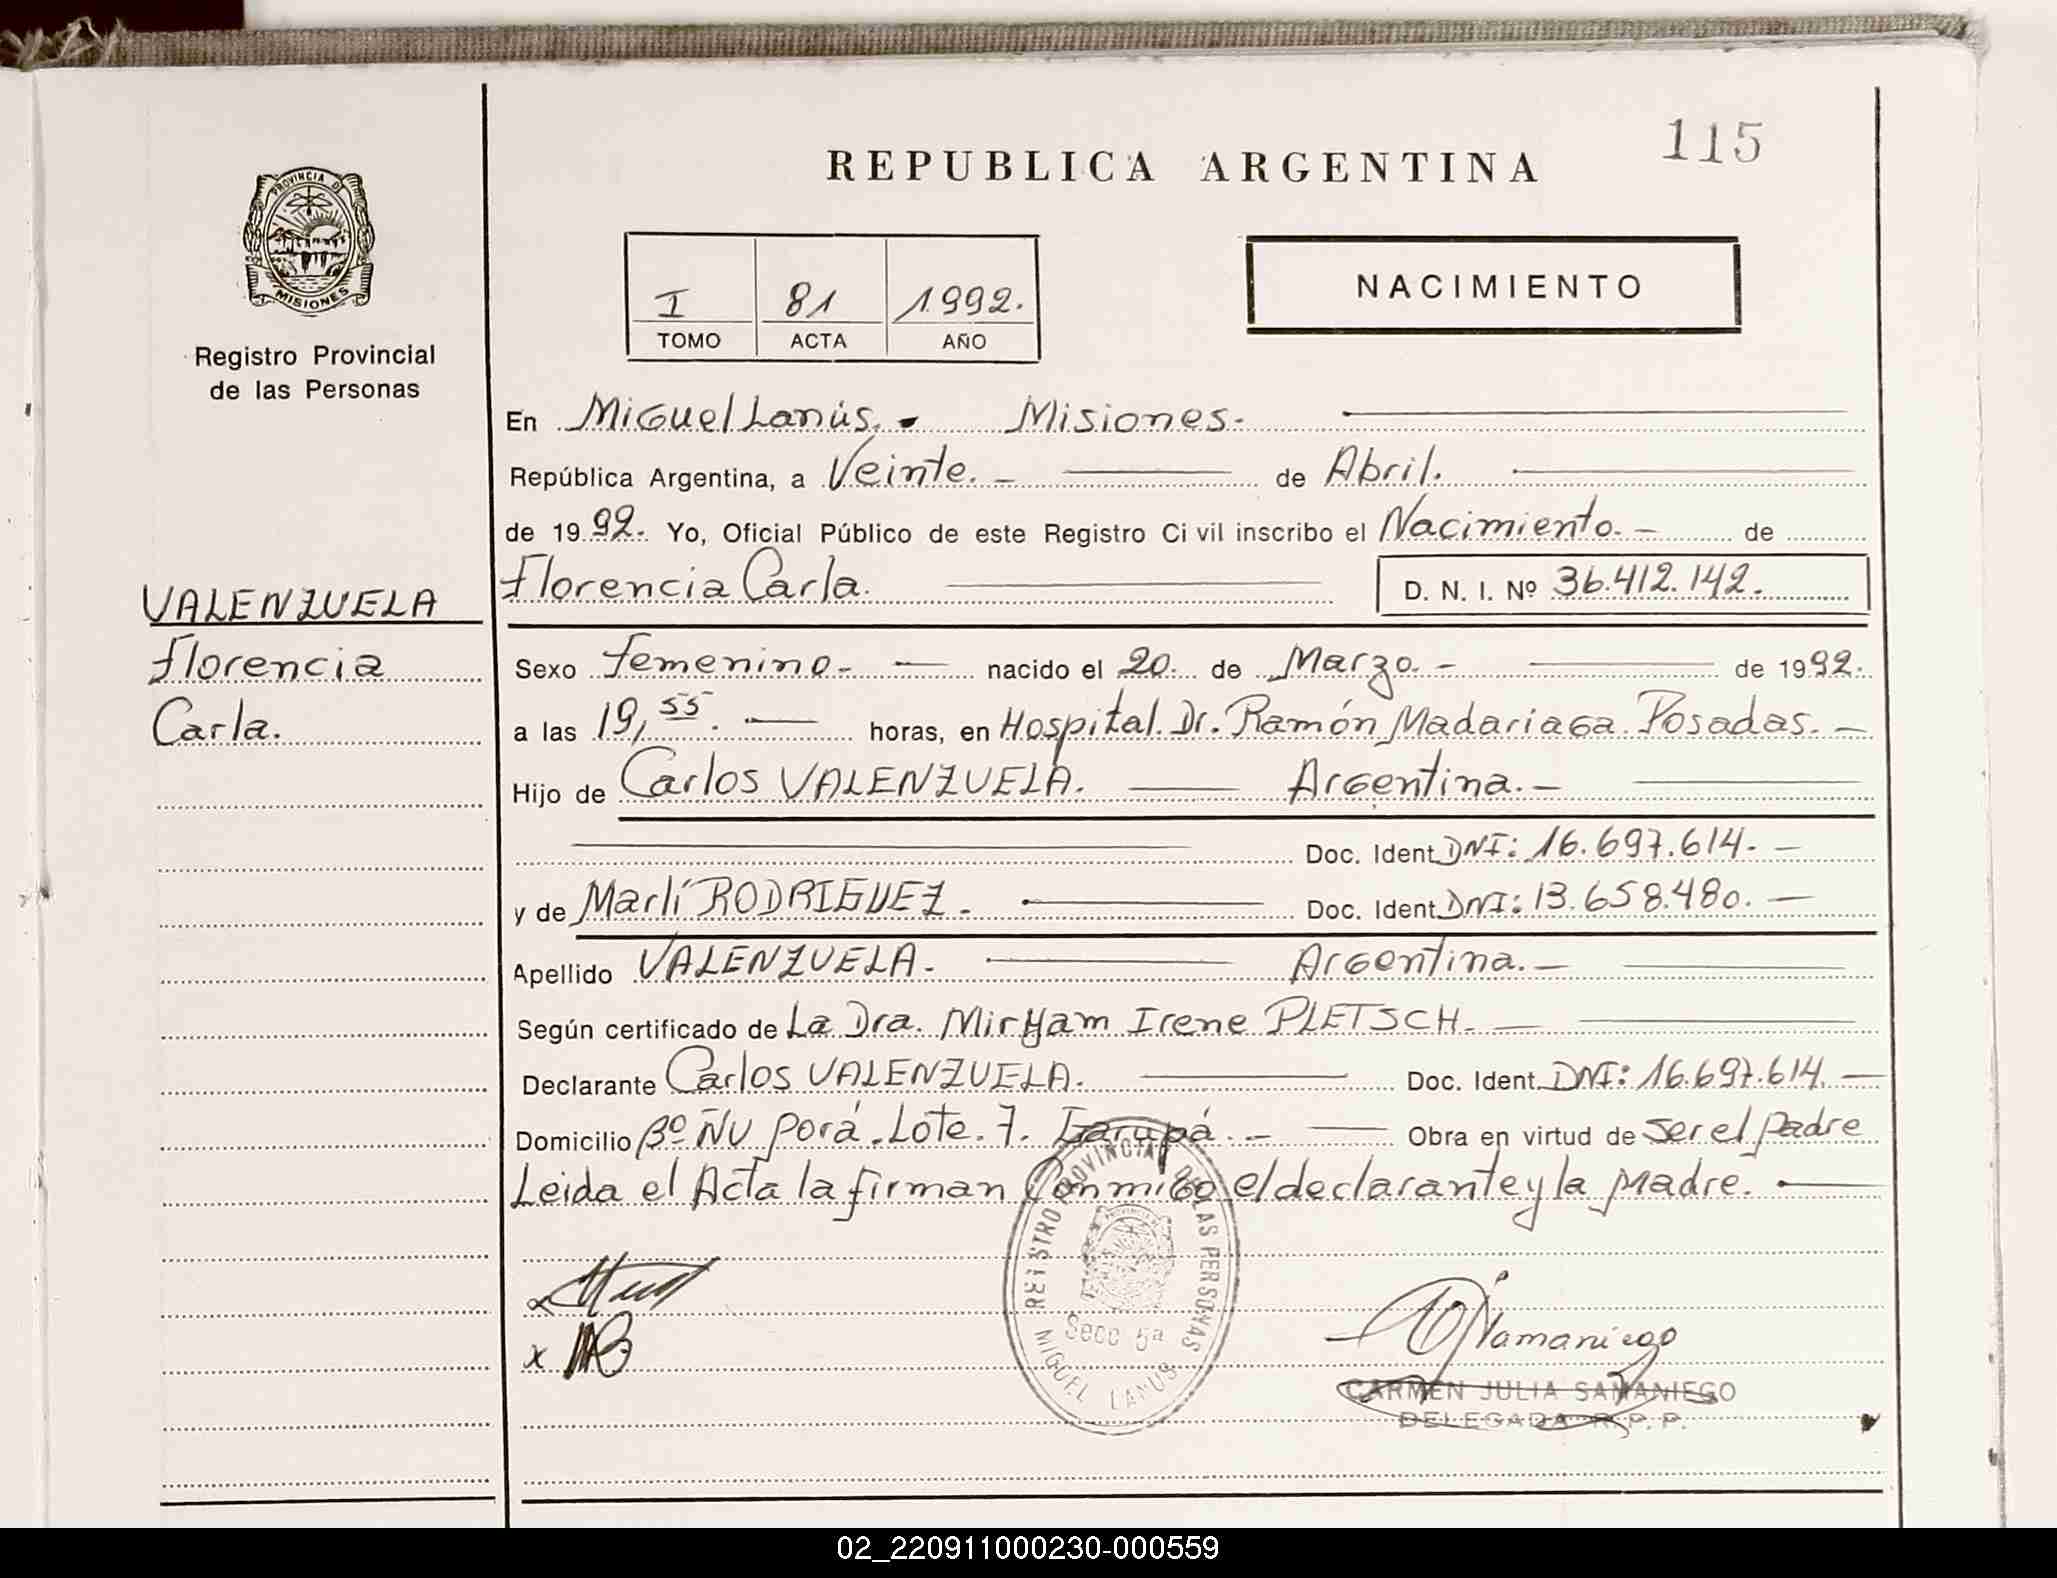 115
REPUBLICA ARGENTINA
PROVINCIA DE
MISIONES
Registro Provincial
de las Personas
I 81 1992.
TOMO ACTA AÑO
NACIMIENTO
En Miguel Lanús. - Misiones.
República Argentina, a Veinte. - de Abril.
de 1992. Yo, Oficial Público de este Registro Civil inscribo el Nacimiento. - de
Florencia Carla. D. N. I. Nº 36.412.142.
VALENZUELA
Florencia
Carla.
Sexo Femenino. - nacido el 20. de Marzo. - de 1992.
a las 19,55. horas, en Hospital. Dr. Ramón Madariaga. Posadas. -
Hijo de Carlos VALENZUELA. Argentina. -
Doc. Ident. DNI: 16.697.614. -
y de Marlí RODRIGUEZ. - Doc. Ident. DNI: 13.658.480. -
Apellido VALENZUELA. Argentina. -
Según certificado de La Dra. Miryam Irene PLETSCH. -
Declarante Carlos VALENZUELA. Doc. Ident. DNI: 16.697.614. -
Domicilio Bº Ñu Porá. Lote. 7. Garupá. - Obra en virtud de ser el padre
Leida el Acta la firman Conmigo el declarante y la Madre.
REGISTRO PROVINCIAL DE LAS PERSONAS
Secc 5ª
MIGUEL LANUS
Samaniego
CARMEN JULIA SAMANIEGO
DELEGADA R. P. P.
02_220911000230-000559